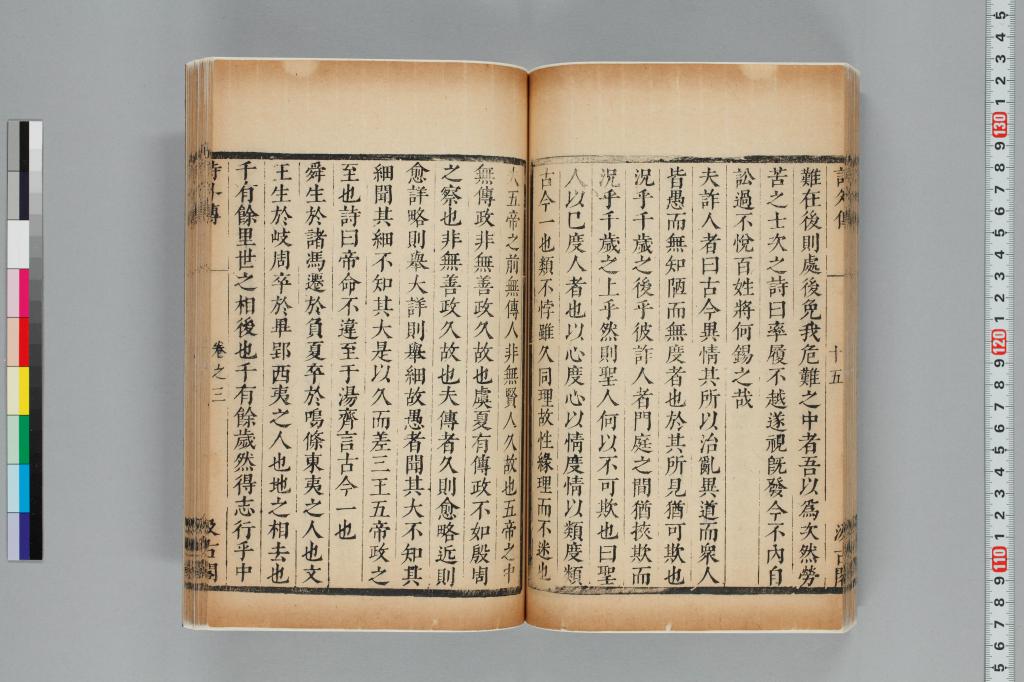 詩外傳
十五
汲古閣
難在後則處後免我危難之中者吾以爲次然勞
苦之士次之詩曰率履不越遂視旣發今不內自
訟過不悅百姓將何錫之哉
夫詐人者曰古今異情其所以治亂異道而衆人
皆愚而無知陋而無度者也於其所見猶可欺也
況乎千歲之後乎彼詐人者門庭之間猶挾欺而
況乎千歲之上乎然則聖人何以不可欺也曰聖
人以己度人者也以心度心以情度情以類度類
古今一也類不悖雖久同理故性緣理而不迷也
夫五帝之前無傳人非無賢人久故也五帝之中
無傳政非無善政久故也虞夏有傳政不如殷周
之察也非無善政久故也夫傳者久則愈略近則
愈詳略則舉大詳則舉細故愚者聞其大不知其
細聞其細不知其大是以久而差三王五帝政之
至也詩曰帝命不違至于湯齊言古今一也
舜生於諸馮遷於負夏卒於鳴條東夷之人也文
王生於岐周卒於畢郢西夷之人也地之相去也
千有餘里世之相後也千有餘歲然得志行乎中
詩外傳
卷之三
汲古閣
5
4
3
2
1
130
9
8
7
6
5
4
3
2
1
120
9
8
7
6
5
4
3
2
1
110
9
8
7
6
5